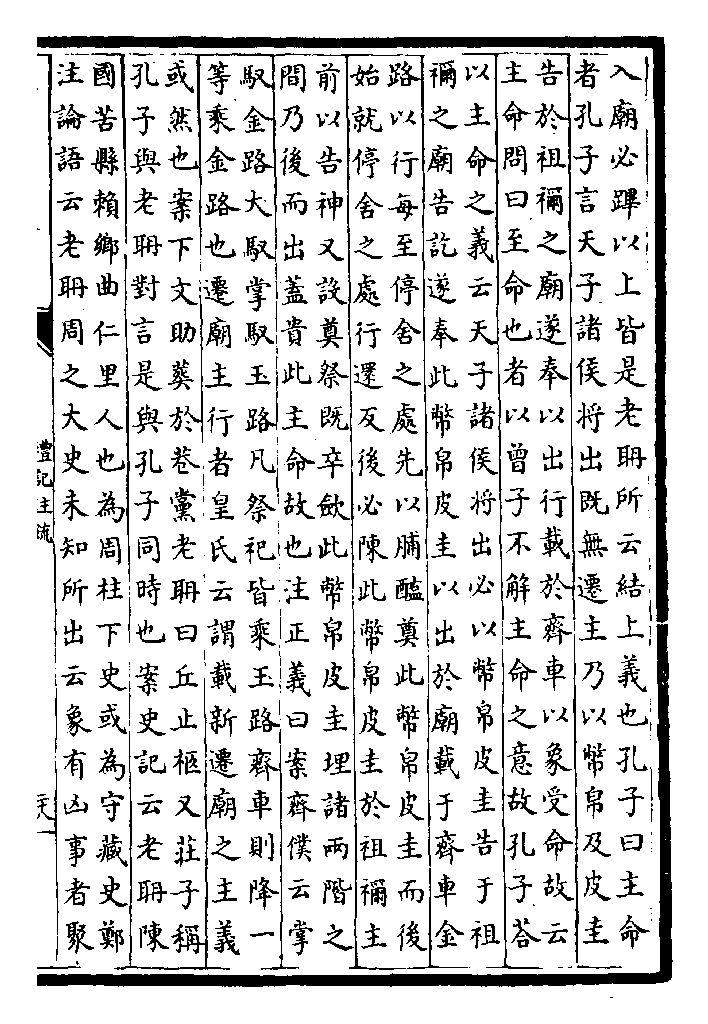 入廟必蹕以上皆是老聃所云結上義也孔子曰主命
者孔子言天子諸侯將出既無遷主乃以幣帛及皮圭
告於祖禰之廟遂奉以出行載於齊車以象受命故云
主命問曰至命也者以曾子不解主命之意故孔子荅
以主命之義云天子諸侯將出必以幣帛皮圭告于祖
禰之廟告訖遂奉此幣帛皮圭以出於廟載于齊車金
路以行每至停舍之處先以脯醢奠此幣帛皮圭而後
始就停舍之處行還反後必陳此幣帛皮圭於祖禰主
前以告神又設奠祭既卒歛此幣帛皮圭埋諸兩階之
間乃後而出蓋貴此主命故也注正義曰案齊僕云掌
馭金路大馭掌馭玉路凡祭祀皆乘玉路齊車則降一
等乘金路也遷廟主行者皇氏云謂載新遷廟之主義
或然也案下文助葬於巷黨老聃曰丘止柩又莊子稱
孔子與老聃對言是與孔子同時也案史記云老聃陳
國苦縣賴鄉曲仁里人也為周柱下史或為守藏史鄭
注論語云老聃周之大史未知所出云象有凶事者聚
禮記注疏